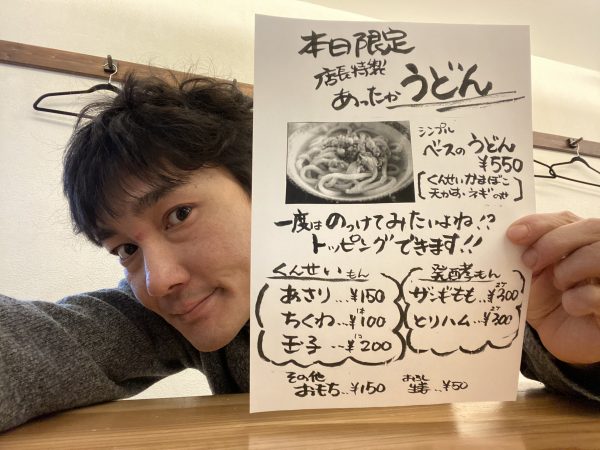 本日限定
店長特製
あったかうどん
シンプル
ベースのうどん
¥550
くんせいかまぼこ
天かす、ネギのせ
一度はのっけてみたいよね!?
トッピングできます!!
くんせいもん
あさり…¥150
ちくわ…¥100
玉子…¥200
発酵もん
ザンギもも…¥300
とりハム…¥300
その他
おもち…¥150
おろし
生姜…¥50